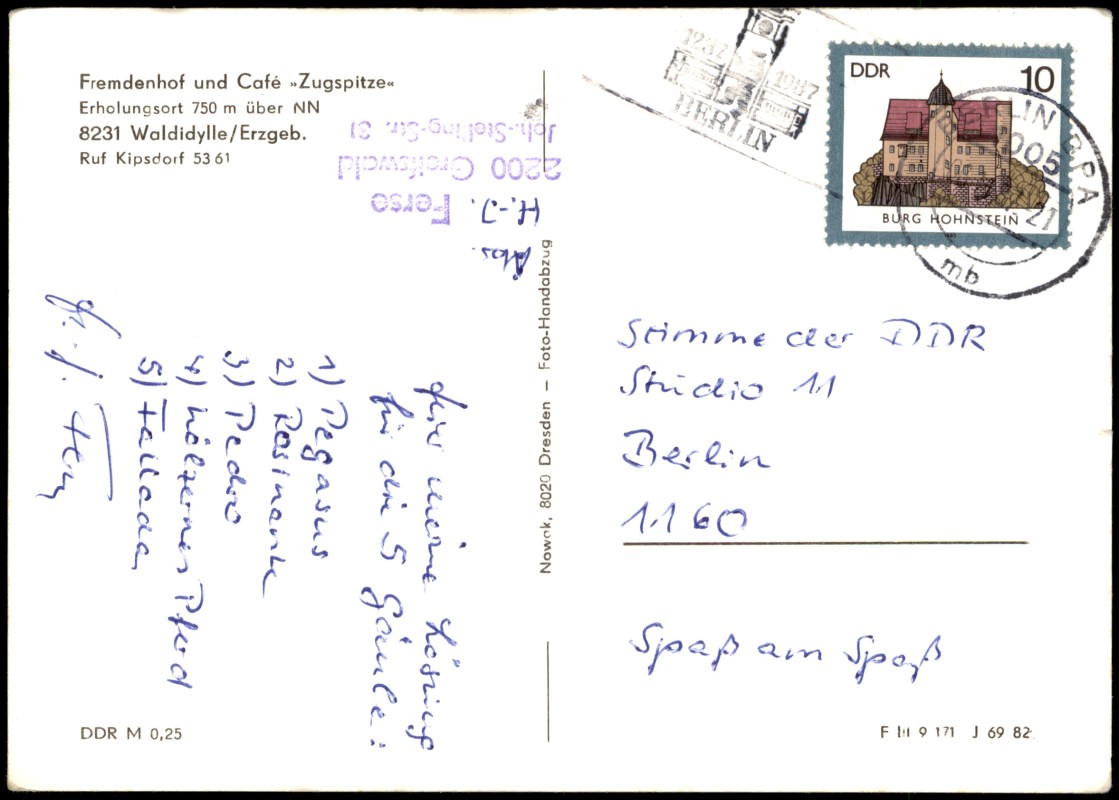 Fremdenhof und Café »Zugspitze«
Erholungsort 750 m über NN
8231 Waldidylle/Erzgeb.
Ruf Kipsdorf 53 61
Abs.
H.-J. Ferse
2200 Greifswald
Joh.-Stelling-Str. 31
Hier meine Lösung
für die 5 Gäule:
1) Pegasus
2) Rosinante
3) Pedro
4) hölzernes Pferd
5) Fallada
Nowak, 8020 Dresden — Foto-Handabzug
1237 1987
BERLIN
DDR 10
BURG HOHNSTEIN
BERLIN BPA
1005
21
mb
Stimme der DDR
Studio 11
Berlin
1160
Spaß am Spaß
DDR M 0,25
F III 9 171 J 69 82